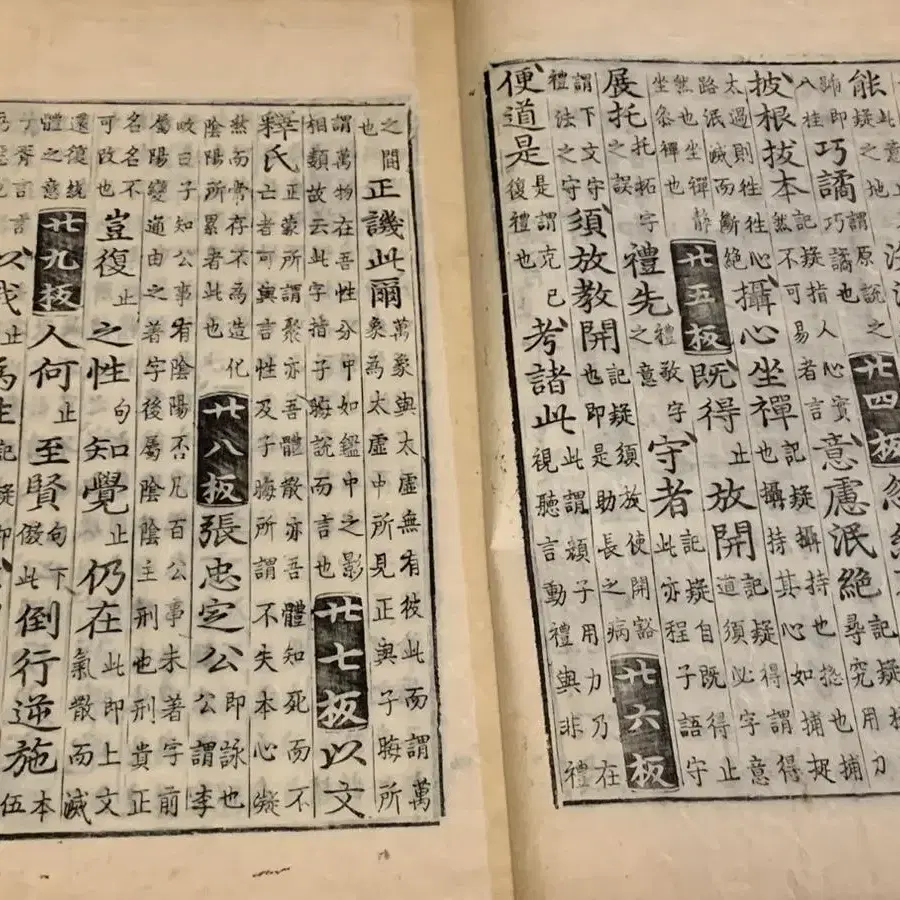 能
巧譎 巧譎也人心實 意慮泯絶
廿四板
披根拔本 記疑指人言然不可易者
太過則牲牲心路泯滅而斷絶 攝心坐禪 記疑攝持也攝持其心如捕捉
廿五板 既得止放開 記疑得謂得道須必字意
展托 托拓字之誤 禮先 禮敬字之意 守者 記疑自既得守此亦程子語止
謂下文守禮法之守 須放教開 記疑須放使開豁也卽是助長之病 廿六板
便道是 是謂克己復禮也 考諸此 此謂顔子用力乃在視聽言動禮與非禮
之間也 正譏此爾 萬象與太虛無有彼此而謂萬象為太虛中所見正與子晦所
謂萬物在吾性分中如鑑中之影相類故云此字指子晦說而言也 廿七板 以文
釋氏 正蒙所謂聚亦吾體散亦吾體知死而不亡者可與言性及子晦所謂不失本心凝
然而常存不為造化陰陽所累者此也 廿八板 張忠定公 卽詠也公謂李
岐曰子知公事有陰陽否凡百公事未著字前屬陽變通由之著字後屬陰主刑也刑貴正
名名不可改也 豈復止之性句知覺止仍在 此卽上文氣散而滅
還復纏體之意 廿九板 人何止至賢 句下倣此 倒行逆施 本伍
子胥言 以我止為生